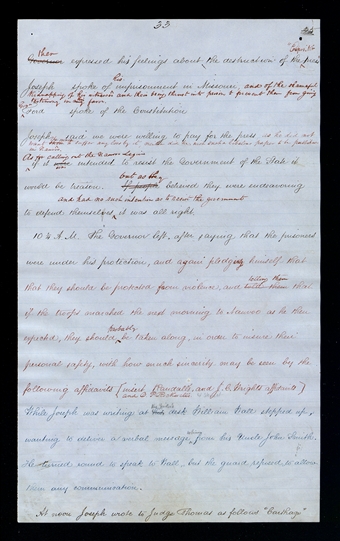 33
then
Governor expressed his feelings about the destruction of the press
his
Joseph spoke of imprisonment in Missouri, and of the shameful
kidnapping of his witnesses and then being thrust into prison to prevent them from giving
testimony in his favor.
Ford spoke of the Constitution
Joseph said we were willing to pay for the press as he did not
want to suffer any loss by it
As for calling out the Nauvoo Legion
if it was intended to resist the Government of the State it
but as they
would be treason. believed they were endeavoring
and had no such intention as to resist the government
to defend themselves, it was all right.
10 1/4 A.M. The Governor left, after saying that the prisoners
were under his protection, and again pledging himself that
telling them
that they should be protected from violence, and
if the troops marched the next morning to Nauvoo, as he then
probably
expected, they should be taken along, in order to insure their
personal safety, with how much sincerity may be seen by the
following affidavits (insert Randall's, and J. C. Wright's affidavits)
While Joseph was writing at desk William Wall stepped up,
wanting to deliver a verbal message from his Uncle John Smith.
He turned round to speak to Wall, but the guard refused to allow
them any communication.
At noon Joseph wrote to Judge Thomas as follows "Carthage